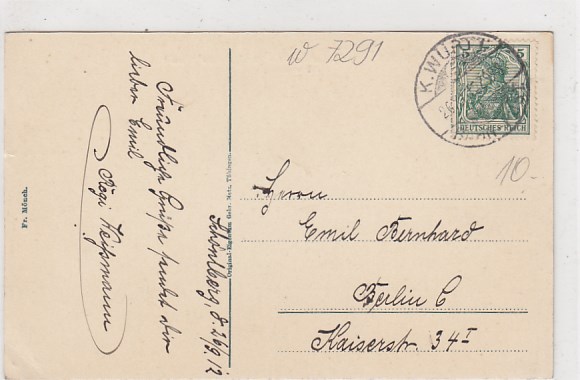 w 7291
K. WÜ
5
DEUTSCHES REICH
10.-
Freundliche Grüße sendet dir
lieber Emil
Rögi Weissmann
Schömberg, d. 26/9/12
Fr. Mönch.
Original-Eigentum Gebr. Metz, Tübingen
Herrn
Emil Bernhard
Berlin C
Kaiserstr. 34 I